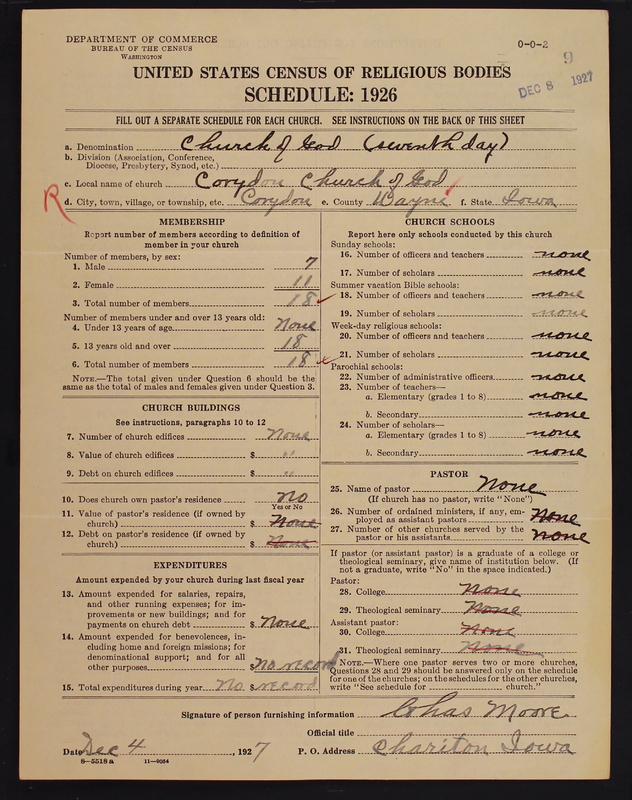 DEPARTMENT OF COMMERCE
BUREAU OF THE CENSUS
WASHINGTON
0-0-2
9
DEC 8 1927
UNITED STATES CENSUS OF RELIGIOUS BODIES
SCHEDULE: 1926
FILL OUT A SEPARATE SCHEDULE FOR EACH CHURCH. SEE INSTRUCTIONS ON THE BACK OF THIS SHEET
a. Denomination Church of God (seventh day)
b. Division (Association, Conference, Diocese, Presbytery, Synod, etc.)
c. Local name of church Corydon Church of God
R
d. City, town, village, or township, etc. Corydon e. County Wayne f. State Iowa
MEMBERSHIP
Report number of members according to definition of
member in your church
Number of members, by sex:
1. Male 7
2. Female 11
3. Total number of members 18
Number of members under and over 13 years old:
4. Under 13 years of age None
5. 13 years old and over 18
6. Total number of members 18
NOTE.—The total given under Question 6 should be the
same as the total of males and females given under Question 3.
CHURCH BUILDINGS
See instructions, paragraphs 10 to 12
7. Number of church edifices None
8. Value of church edifices $ "
9. Debt on church edifices $ "
10. Does church own pastor's residence No
Yes or No
11. Value of pastor's residence (if owned by
church) $ None
12. Debt on pastor's residence (if owned by
church) $ None
EXPENDITURES
Amount expended by your church during last fiscal year
13. Amount expended for salaries, repairs,
and other running expenses; for im-
provements or new buildings; and for
payments on church debt $ None
14. Amount expended for benevolences, in-
cluding home and foreign missions; for
denominational support; and for all
other purposes No record
15. Total expenditures during year No $ record
CHURCH SCHOOLS
Report here only schools conducted by this church
Sunday schools:
16. Number of officers and teachers none
17. Number of scholars none
Summer vacation Bible schools:
18. Number of officers and teachers none
19. Number of scholars none
Week-day religious schools:
20. Number of officers and teachers none
21. Number of scholars none
Parochial schools:
22. Number of administrative officers none
23. Number of teachers—
a. Elementary (grades 1 to 8) none
b. Secondary none
24. Number of scholars—
a. Elementary (grades 1 to 8) none
b. Secondary none
PASTOR
25. Name of pastor None
(If church has no pastor, write "None")
26. Number of ordained ministers, if any, em-
ployed as assistant pastors None
27. Number of other churches served by the
pastor or his assistants none
If pastor (or assistant pastor) is a graduate of a college or
theological seminary, give name of institution below. (If
not a graduate, write "No" in the space indicated.)
Pastor:
28. College None
29. Theological seminary None
Assistant pastor:
30. College None
31. Theological seminary None
NOTE.—Where one pastor serves two or more churches,
Questions 28 and 29 should be answered only on the schedule
for one of the churches; on the schedules for the other churches,
write "See schedule for church."
Signature of person furnishing information Chas Moore
Official title
Date Dec 4, 1927 P. O. Address Chariton Iowa
8—5518a 11—9054